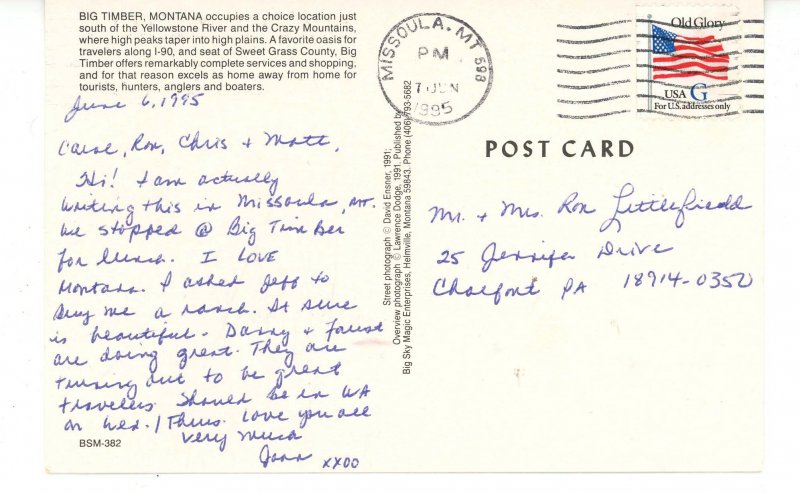 BIG TIMBER, MONTANA occupies a choice location just
south of the Yellowstone River and the Crazy Mountains,
where high peaks taper into high plains. A favorite oasis for
travelers along I-90, and seat of Sweet Grass County, Big
Timber offers remarkably complete services and shopping,
and for that reason excels as home away from home for
tourists, hunters, anglers and boaters.
June 6, 1995
Carol, Ron, Chris + Matt,
Hi! I am actually
writing this in Missoula, MT.
We stopped @ Big Timber
for lunch. I LOVE
Montana. I asked Jeff to
buy me a ranch. It sure
is beautiful. Danny + Forest
are doing great. They are
turning out to be great
travelers. Should be in WA
on Wed. / Thurs. Love you all
very much
Joan xxoo
BSM-382
Street photograph © David Ensner, 1991;
Overview photograph © Lawrence Dodge, 1991. Published by
Big Sky Magic Enterprises, Helmville, Montana 59843. Phone (406) 793-5682
MISSOULA, MT 598
PM
7 JUN
1995
Old Glory
USA G
For U.S. addresses only
POST CARD
Mr. + Mrs. Ron Littlefield
25 Jennifer Drive
Chalfont PA 18914-0352